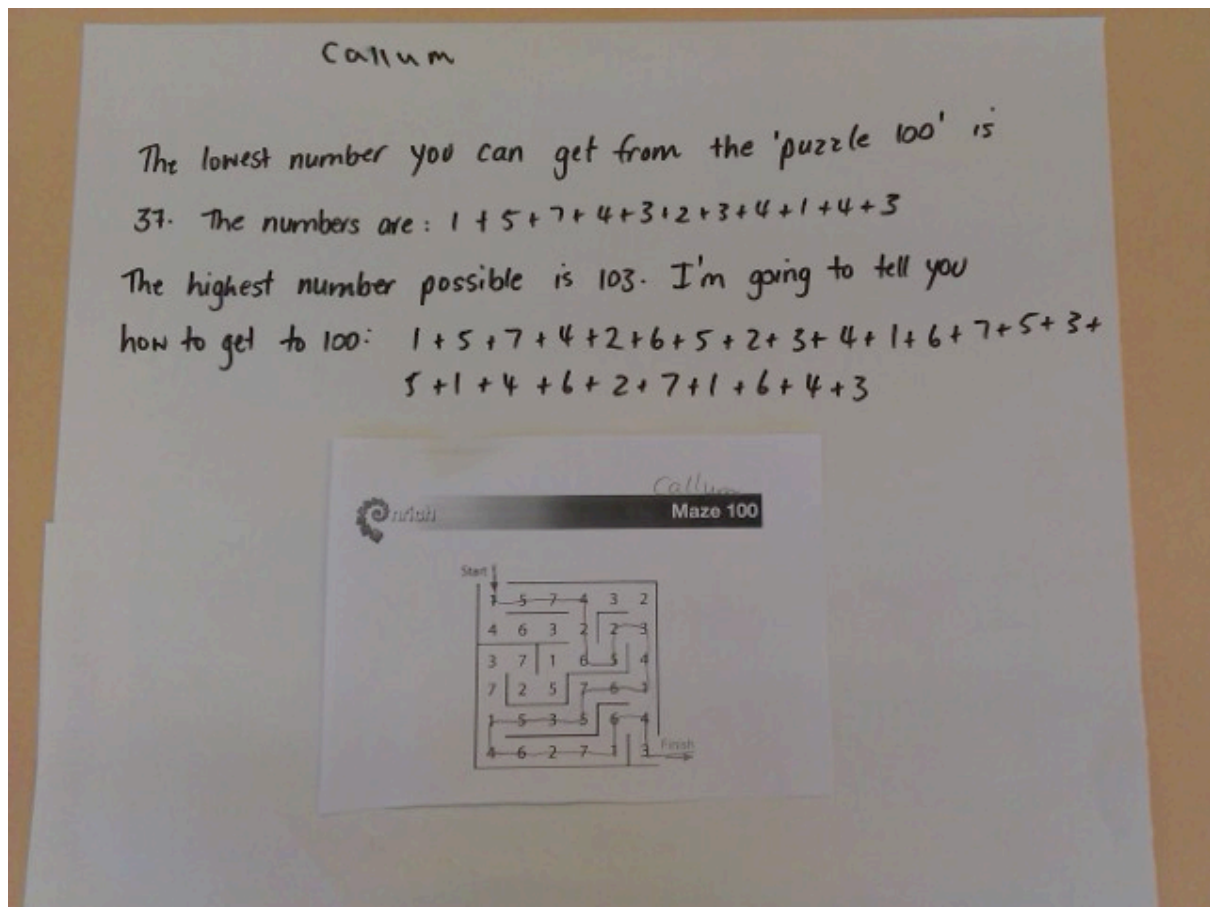 Callum
The lowest number you can get from the 'puzzle 100' is
37. The numbers are: 1+5+7+4+3+2+3+4+1+4+3
The highest number possible is 103. I'm going to tell you
how to get to 100: 1+5+7+4+2+6+5+2+3+4+1+6+7+5+3+
5+1+4+6+2+7+1+6+4+3
Callum
nrich Maze 100
Start
1 5 7 4 3 2
4 6 3 2 2 3
3 7 1 6 5 4
7 2 5 7 6 1
1 5 3 5 6 4
4 6 2 7 1 3 Finish